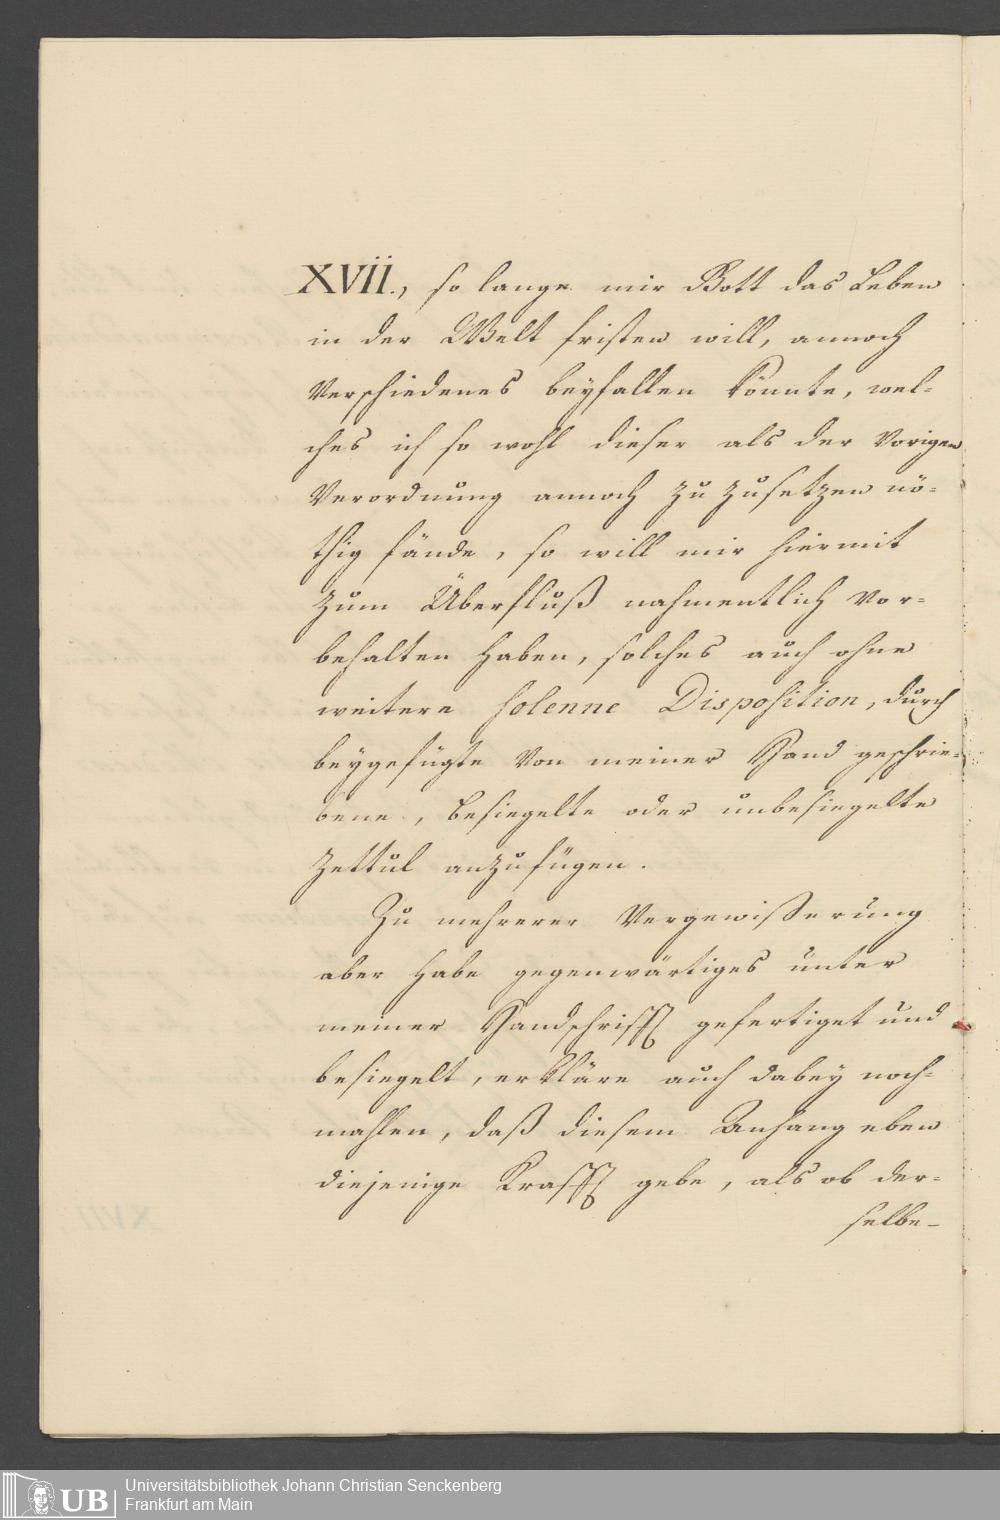 XVII., so lange mir Gott das Leben
in der Welt fristen will, annoch
Verschiedenes beyfallen könnte, wel-
ches ich so wohl dieser als der Vorigen
Verordnung annoch zu zusetzen nö-
thig fände, so will mir hiermit
zum Überfluß nahmentlich Vor-
behalten haben, solches auch ohne
weitere solenne Disposition, durch
beygefügte Von meiner Hand geschrie-
bene, besiegelte oder unbesiegelte
Zettul anzufügen.
Zu mehrerer Vergewißerung
aber habe gegenwärtiges unter
meiner Handschrifft gefertiget und
besiegelt, erkläre auch dabey noch-
mahlen, daß diesem Anhang eben
diejenige Krafft gebe, als ob der-
selbe-
UB
Universitätsbibliothek Johann Christian Senckenberg
Frankfurt am Main